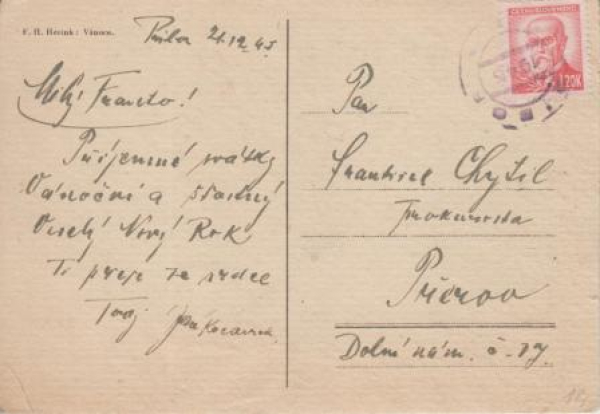 F. R. Hesink: Vánoce.
21.12.45
Milý Franto!
Příjemné svátky
Vánoční a šťastný
Veselý Nový Rok
Ti přeje ze srdce
Tvůj
ČESKOSLOVENSKO
1.20K
Pan
František Chytil
Přerov
Dolní nám. č. 37